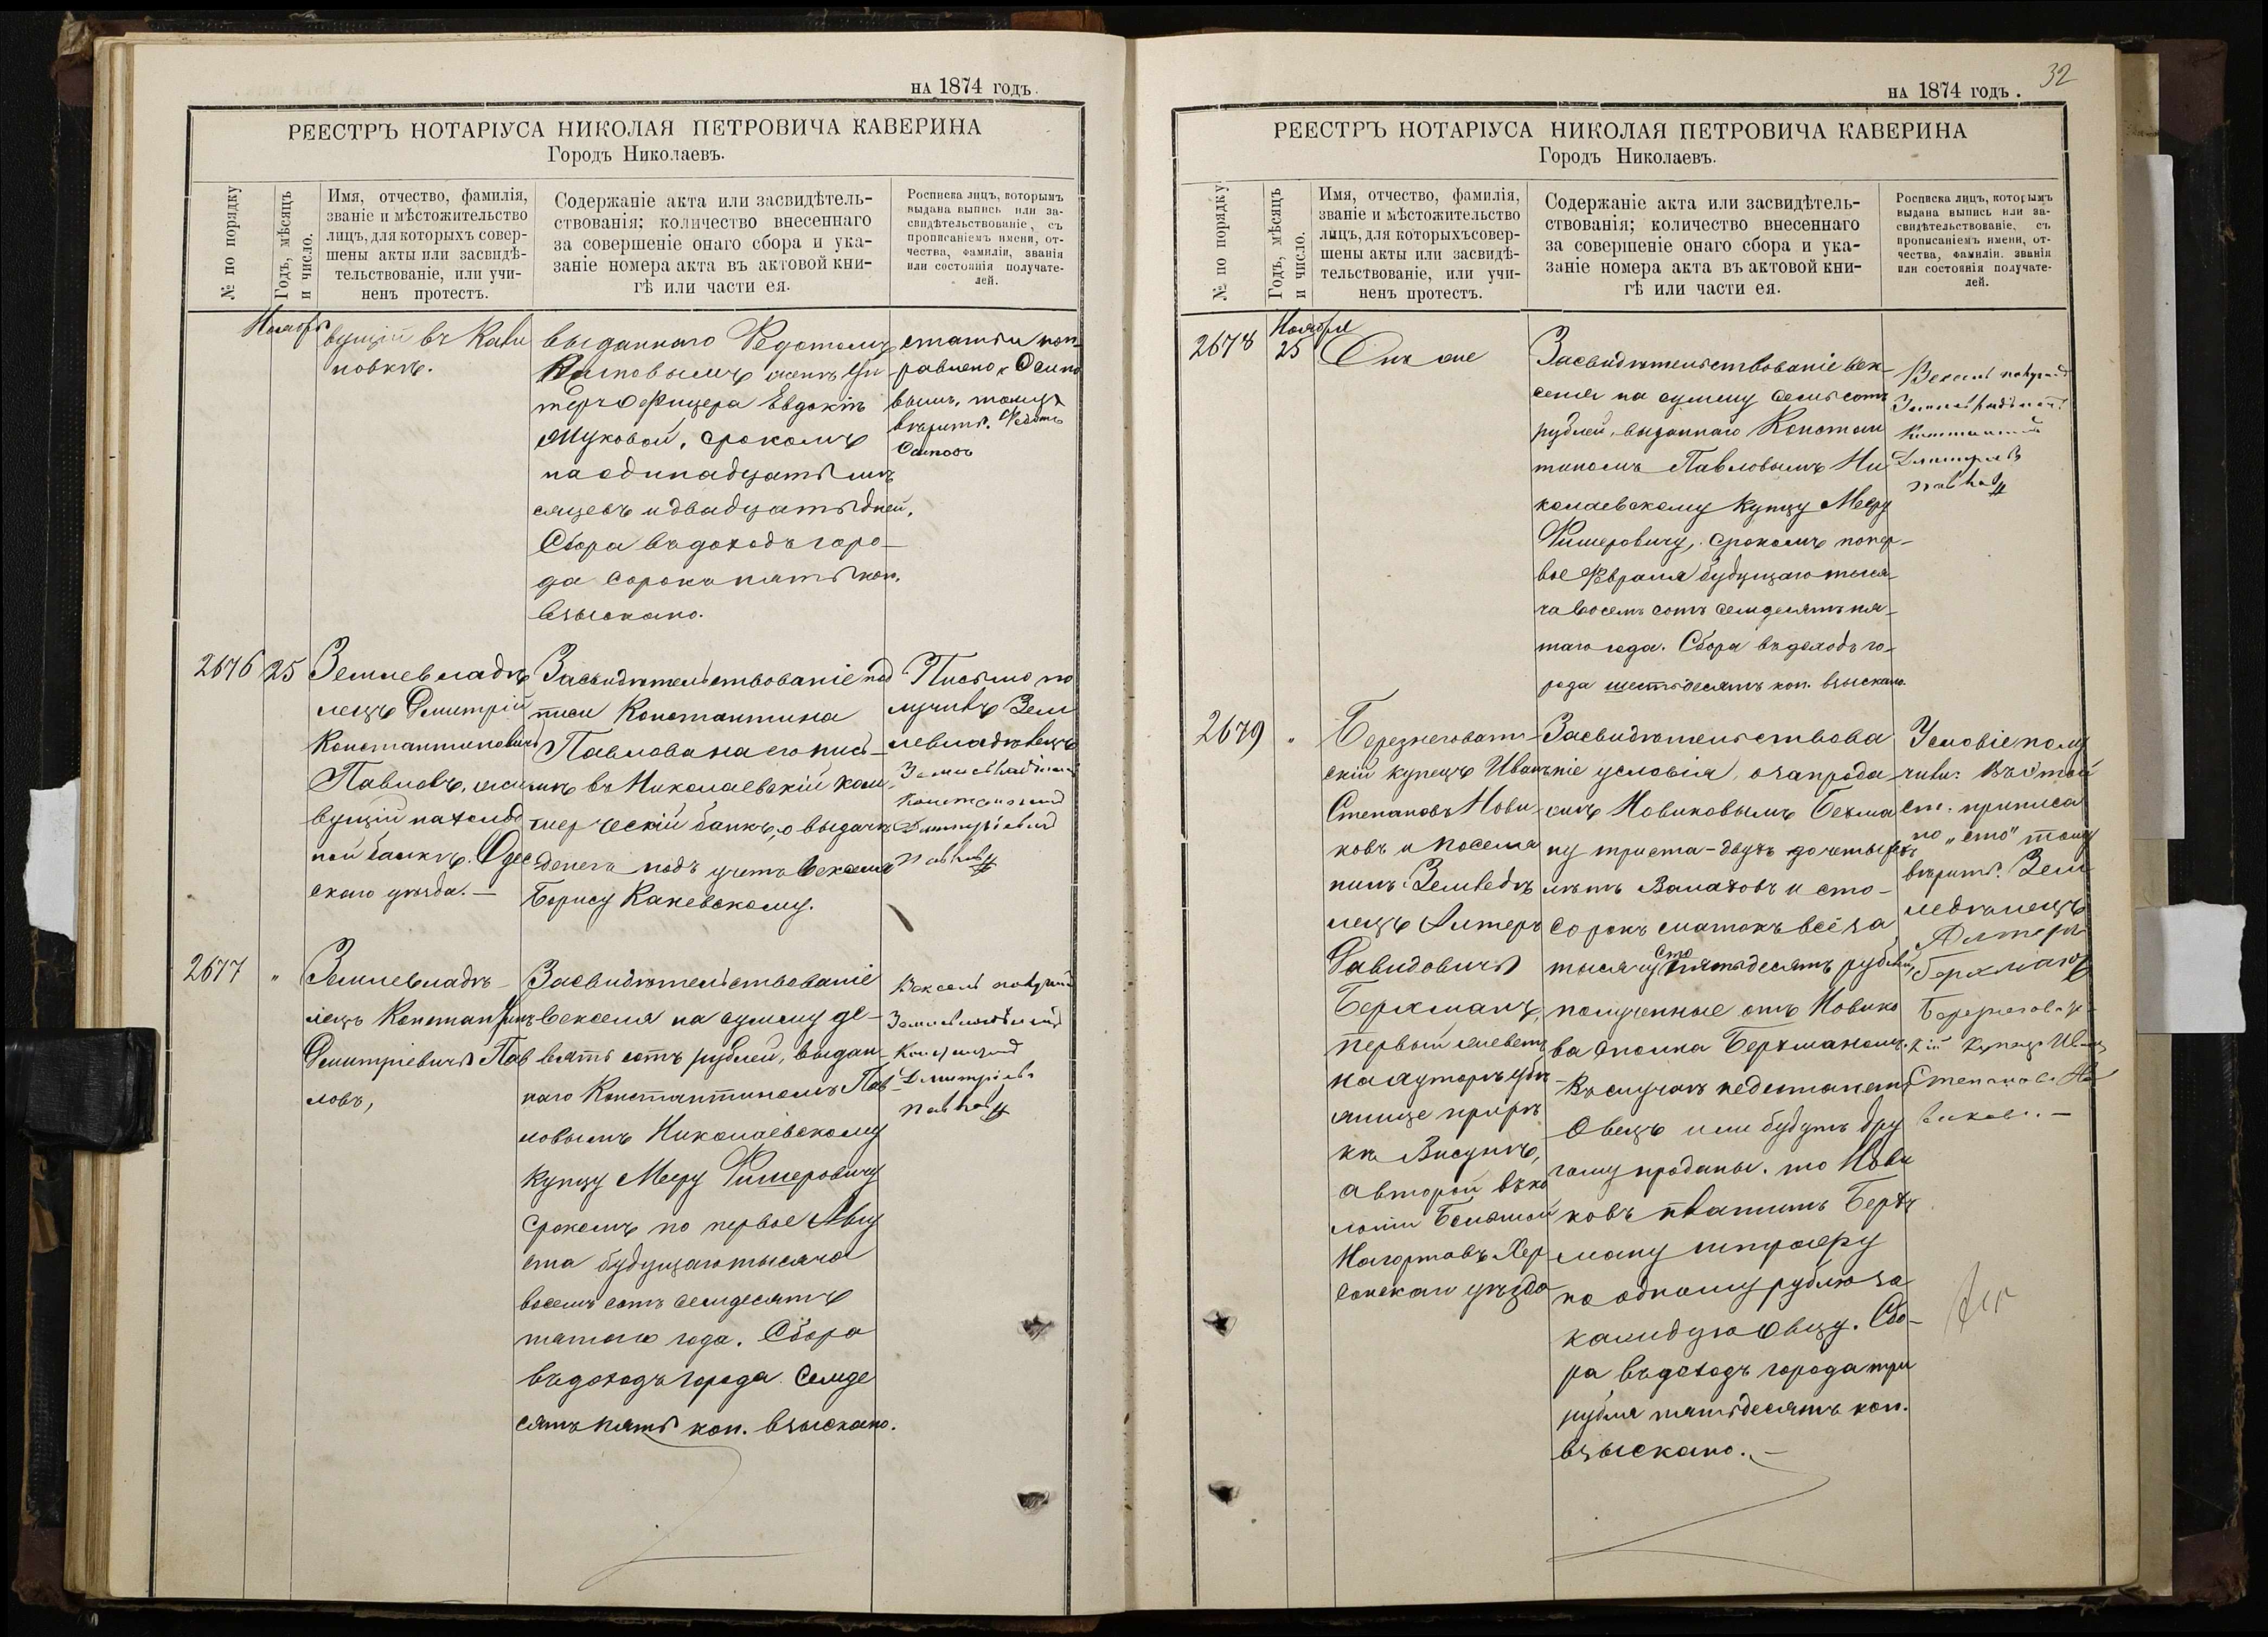 НА 1874 ГОДЪ.
РЕЕСТРЪ НОТАРІУСА НИКОЛАЯ ПЕТРОВИЧА КАВЕРИНА
Городъ Николаевъ.
№ по порядку
Годъ, мѣсяцъ
и число.
Имя, отчество, фамилія,
званіе и мѣстожительство
лицъ, для которыхъ совер-
шены акты или засвидѣ-
тельствованіе, или учи-
ненъ протестъ.
Содержаніе акта или засвидѣтель-
ствованія; количество внесеннаго
за совершеніе онаго сбора и ука-
заніе номера акта въ актовой кни-
гѣ или части ея.
Росписка лицъ, которымъ
выдана выпись или за-
свидѣтельствованіе, съ
прописаніемъ имени, от-
чества, фамиліи, званія
или состоянія получате-
лей.
Ноябрь
вущій въ
новкѣ.
выданнаго Федотомъ
Осиповымъ женѣ Ун
теръ Офицера Евдокіи
Жуковой, срокомъ
на одинадцать мѣ
сяцевъ и двадцать дней,
Сбора въ доходъ горо-
да сорокъ пять коп.
взыскано.
статьи поп-
равлено „Осипо
вымъ, тому
вѣрить. Федотъ
Осипов
2676
25
Землевладѣ
лецъ Дмитрій
Константиновичъ
Павловъ, жи
вущій на
ной балкѣ. Одес
скаго уѣзда.—
Засвидѣтельствованіе под
писи Константина
Павлова на его пись-
мѣ въ Николаевскій ком
мерческій банкъ, о выдачѣ
денегъ подъ учетъ векселя
Борису Каневскому.
Письмо по
лучилъ Зем
левладѣлецъ
Землевладѣлецъ
Константинъ
Дмитріевъ
Павловъ
2677
"
Землевладѣ-
лецъ Константинъ
Дмитріевичъ Пав
ловъ,
Засвидѣтельствованіе
векселя на сумму де-
вять сотъ рублей, выдан-
наго Константиномъ Пав-
ловымъ Николаевскому
купцу Меру Фишеровичу
срокомъ по первое Авгу
ста будущаго тысяча
восемь сотъ семдесятъ
пятаго года. Сбора
въ доходъ города семде
сятъ пять коп. взыскано.
Вексель получилъ
Землевладѣлецъ
Константинъ
Дмитріевъ
Павловъ
32
НА 1874 ГОДЪ.
РЕЕСТРЪ НОТАРІУСА НИКОЛАЯ ПЕТРОВИЧА КАВЕРИНА
Городъ Николаевъ.
№ по порядку
Годъ, мѣсяцъ
и число.
Имя, отчество, фамилія,
званіе и мѣстожительство
лицъ, для которыхъ совер-
шены акты или засвидѣ-
тельствованіе, или учи-
ненъ протестъ.
Содержаніе акта или засвидѣтель-
ствованія; количество внесеннаго
за совершеніе онаго сбора и ука-
заніе номера акта въ актовой кни-
гѣ или части ея.
Росписка лицъ, которымъ
выдана выпись или за-
свидѣтельствованіе, съ
прописаніемъ имени, от-
чества, фамиліи, званія
или состоянія получате-
лей.
Ноября
2678
25
Онъ же
Засвидѣтельствованіе век-
селя на сумму семь сотъ
рублей, выданнаго Констан
тиномъ Павловымъ Ни
колаевскому купцу Меру
Фишеровичу, срокомъ по пер-
вое Февраля будущаго тыся-
ча восемь сотъ семдесятъ пя-
таго года. Сбора въ доходъ го-
рода шестьдесятъ коп. взыскано.
Вексель получилъ
Землевладѣлецъ
Константинъ
Дмитріевъ
Павловъ
2679
"
Березнеговат-
скій купецъ Иванъ
Степановъ Нови
ковъ и поселя
нинъ Земледѣ
лецъ Алтеръ
Давидовичъ
Берхманъ,
первый живетъ
на хуторѣ
при рѣ
кѣ Висунѣ,
а второй въ ко
лоніи Большой
Нагортавъ Хер
сонскаго уѣзда
Засвидѣтельствова
ніе условія, о запрода
жѣ Новиковымъ Берхма
ну триста-двухъ до четырехъ
лѣтъ Валаховъ и сто-
сорокъ матокъ всё за
тысячу сто пятьдесятъ рублей,
полученные отъ Новико
ва сполна Берхманомъ.
Въ случаѣ недостанетъ
Овецъ или будутъ дру
гому проданы, то Нови
ковъ платитъ Берх
ману штрафу
по одному рублю за
каждую овцу. Сбо-
ра въ доходъ города три
рубля пятьдесятъ коп.
взыскано.—
Условіе полу
чилъ. Въ этой
ст. приписа
но „сто" тому
вѣрить. Зем
ледѣлецъ
Алтеръ
Берхманъ
Березнеговат-
кій купецъ Иванъ
Степановъ Но
виковъ.—